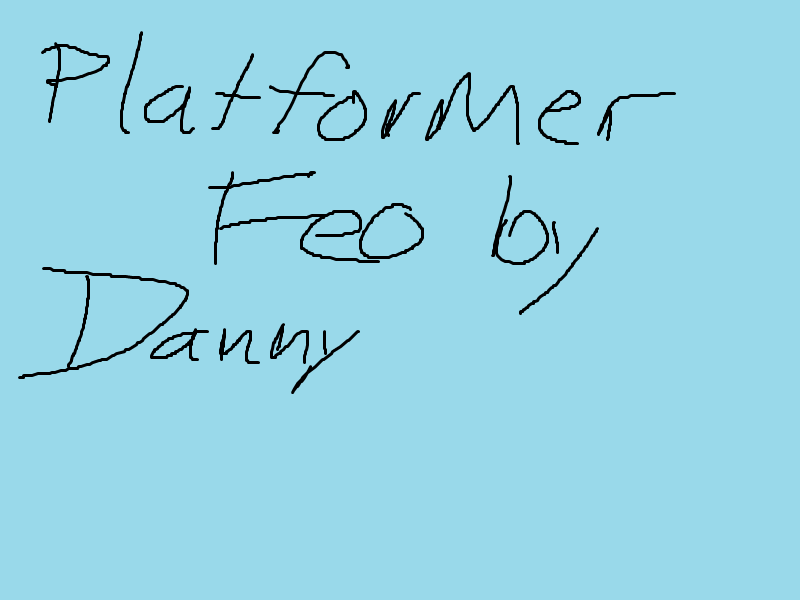 Platformer
Feo by
Danny